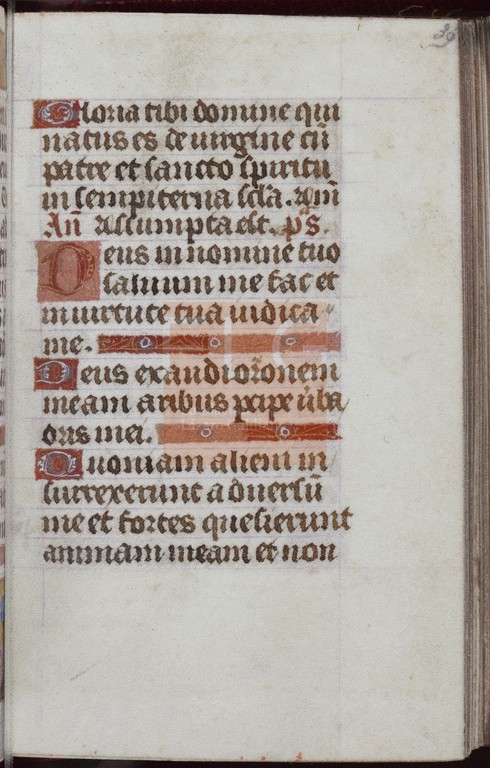 39
Gloria tibi domine qui
natus es de uirgine cū
patre et sancto spiritu
in sempiterna scła. amī
Añ Assumpta est. pˢ.
Deus in nomine tuo
saluum me fac et
in uirtute tua iudica
me.
Deus exaudi orōnem
meam aribus pcipe ūba
oris mei.
Quoniam alieni in
surrexerunt aduersū
me et fortes quesierunt
animam meam et non